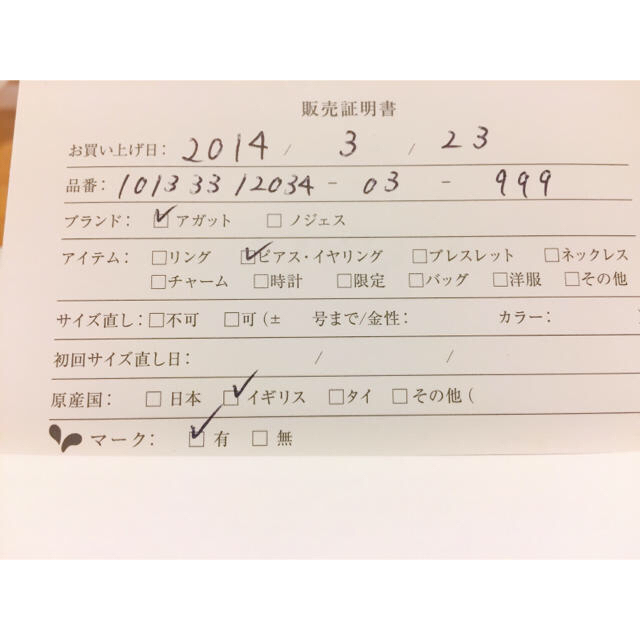 販売証明書
お買い上げ日: 2014 / 3 / 23
品番: 1013 33 12034 - 03 - 999
ブランド: ☑ アガット □ ノジェス
アイテム: □リング ☑ピアス・イヤリング □ブレスレット □ネックレス
□チャーム □時計 □限定 □バッグ □洋服 □その他
サイズ直し: □不可 □可 (± 号まで/金性: カラー:
初回サイズ直し日: / /
原産国: □ 日本 ☑イギリス □タイ □その他 (
マーク: ☑ 有 □ 無